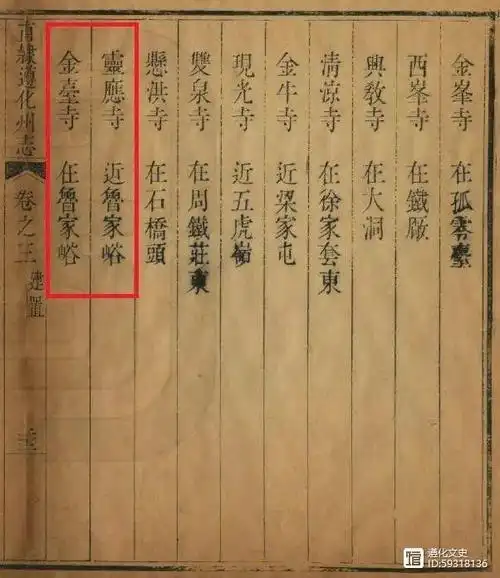 金峯寺 在孤雲臺
西峯寺 在鐵廠
興教寺 在大洞
清涼寺 在徐家套東
金牛寺 近梁家屯
現光寺 近五虎嶺
雙泉寺 在周鐵莊東
懸洪寺 在石橋頭
靈應寺 近魯家峪
金臺寺 在魯家峪
直隸遵化州志 卷之三 建置
遵化文史
ID:59318136